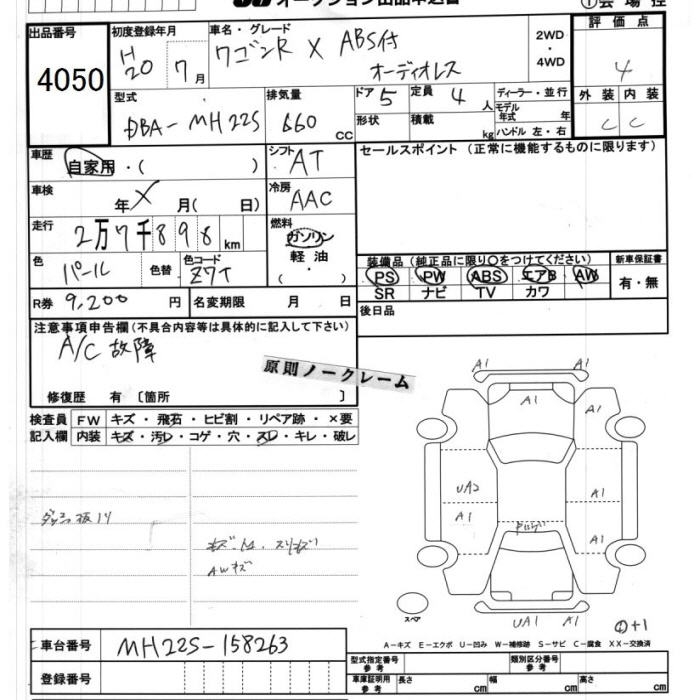 オークション出品申込書
①会場控
出品番号
4050
初度登録年月
H20 7月
車名・グレード
ワゴンR X ABS付
オーディオレス
2WD
・
4WD
評価点
4
外装 内装
C C
型式
DBA-MH22S
排気量
660 CC
ドア 5
定員 4 人
形状
積載 kg
ディーラー・並行
モデル年式 年
ハンドル 左・右
車歴
自家用・( )
シフト AT
セールスポイント (正常に機能するものに限ります)
車検
年 X 月( 日)
冷房 AAC
走行
2万7千898 km
燃料
ガソリン
軽油
( ・ )
色
パール
色替
色コード
Z7T
装備品 (純正品に限り○をつけてください)
PS PW ABS エアB AW
SR ナビ TV カワ
新車保証書
有・無
R券 9,200 円
名変期限 月 日
後日品
注意事項申告欄 (不具合内容等は具体的に記入して下さい)
A/C 故障
原則ノークレーム
修復歴 有 〔箇所 〕
検査員 FW キズ・飛石・ヒビ割・リペア跡・×要
記入欄 内装 キズ・汚レ・コゲ・穴・スレ・キレ・破レ
AWキズ
A1 A1
A1
A1
UA2
A1
A1
A1
UA1 A1
スペア
④+1
A-キズ E-エクボ U-凹み W-補修跡 S-サビ C-腐食 XX-交換済
車台番号
MH22S-158263
登録番号
型式指定番号
参考
類別区分番号
参考
車庫証明用
参考
長さ cm
幅 cm
高さ cm